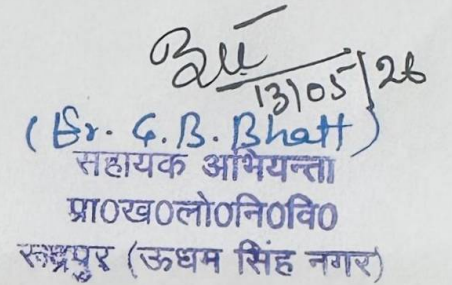 13/05/26
(Er. G.B. Bhatt)
सहायक अभियन्ता
प्रा०ख०लो०नि०वि०
रूद्रपुर (ऊधम सिंह नगर)